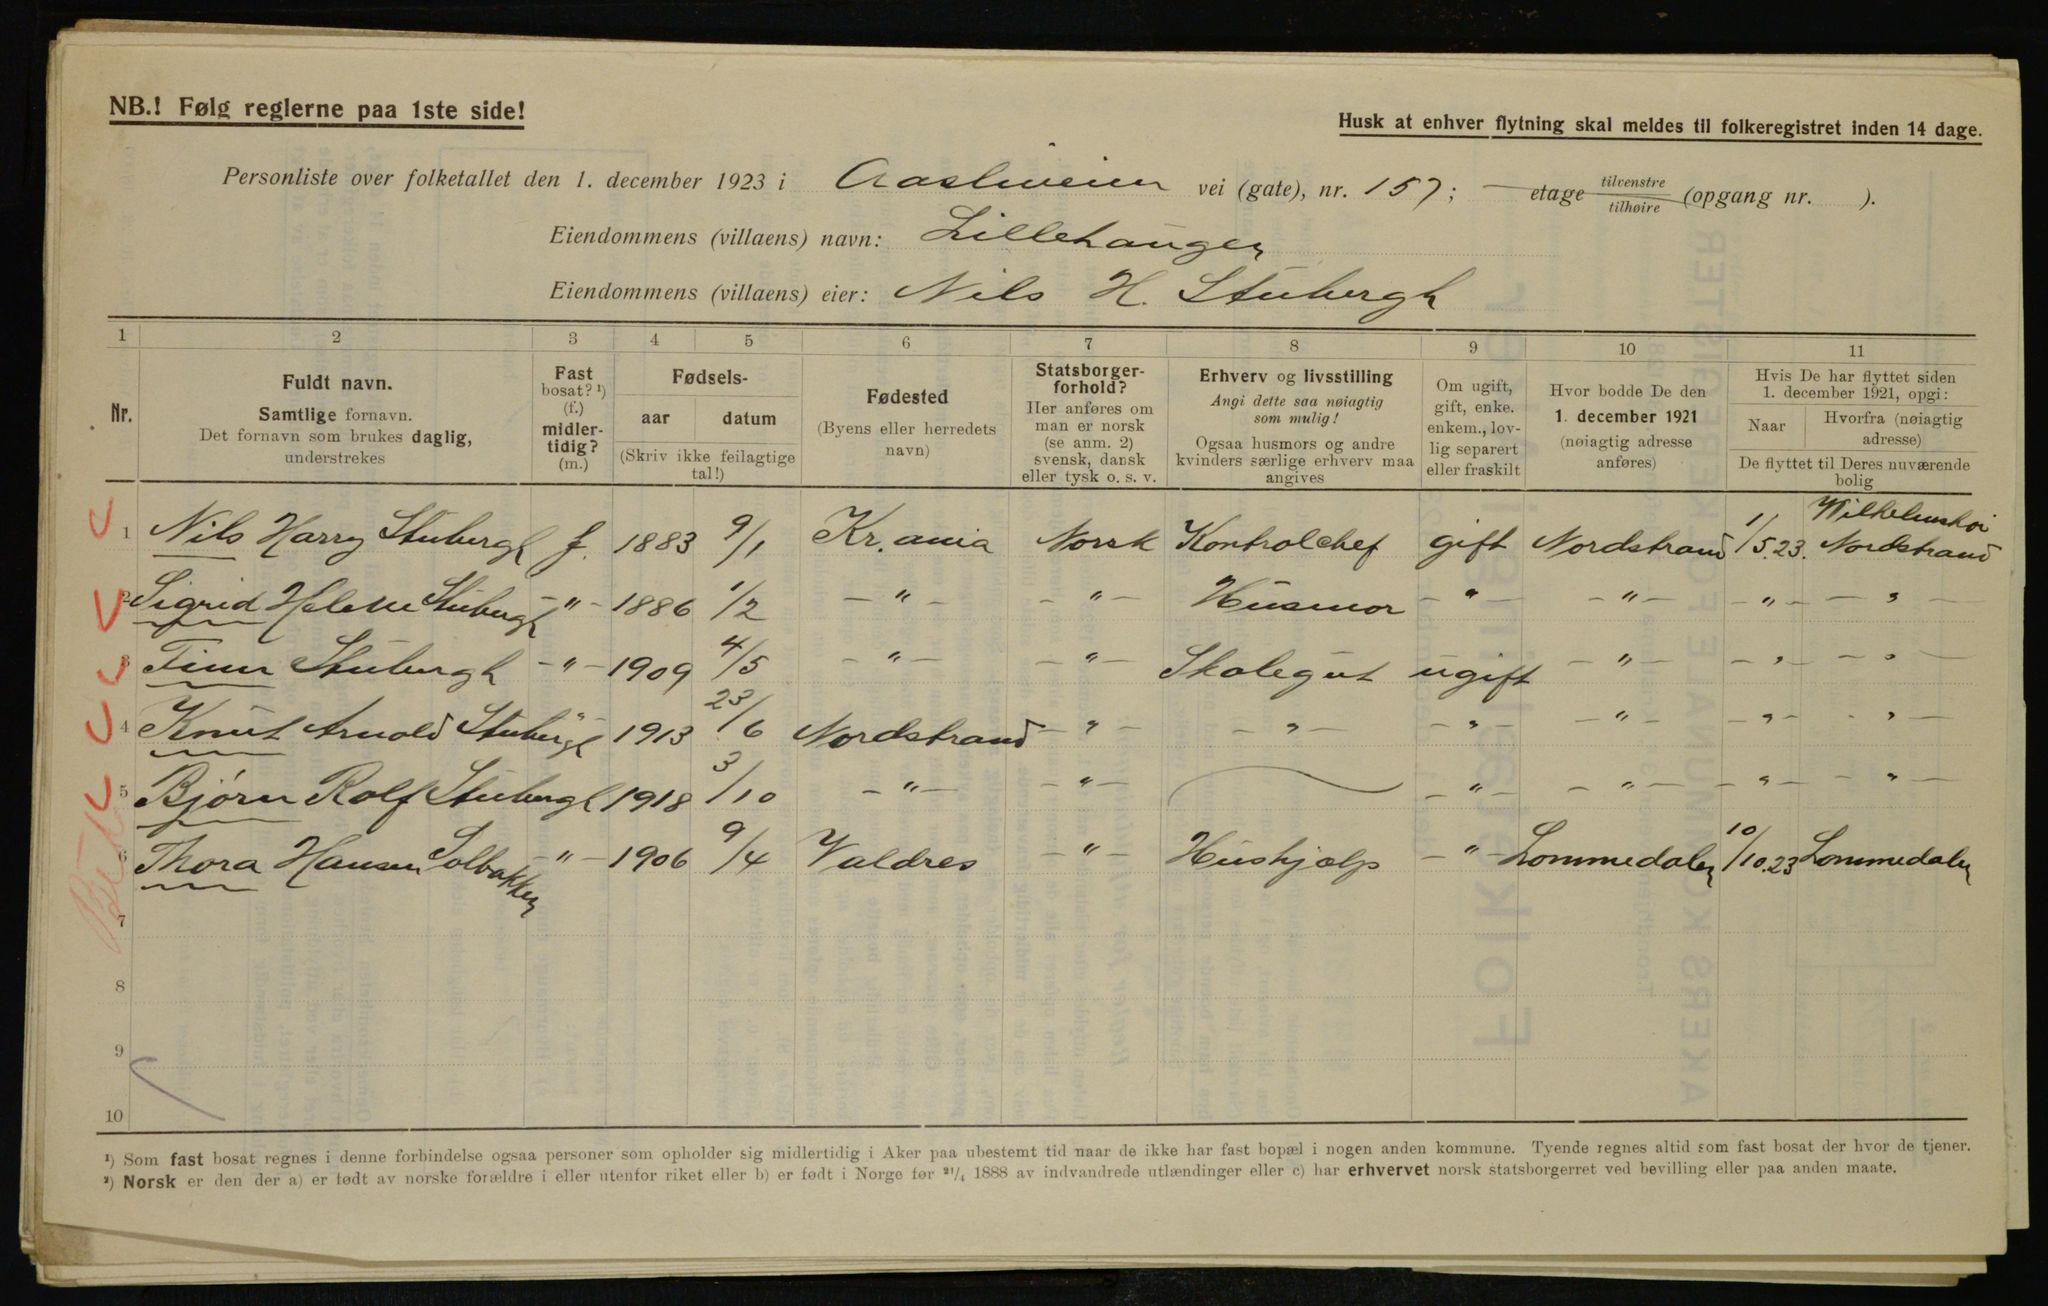 NB.! Følg reglerne paa 1ste side!
Husk at enhver flytning skal meldes til folkeregistret inden 14 dage.
Personliste over folketallet den 1. december 1923 i vei (gate), nr. 157; — etage tilvenstre tilhøire (opgang nr. ).
Eiendommens (villaens) navn: Lillehaugen
Eiendommens (villaens) eier: Nils H. Stubergh
1 2 3 4 5 6 7 8 9 10 11
Nr.
Fuldt navn.
Samtlige fornavn.
Det fornavn som brukes daglig,
understrekes
Fast
bosat? ¹)
(f.)
midler-
tidig?
(m.)
Fødsels-
aar datum
(Skriv ikke feilagtige
tal!)
Fødested
(Byens eller herredets
navn)
Statsborger-
forhold?
Her anføres om
man er norsk
(se anm. 2)
svensk, dansk
eller tysk o. s. v.
Erhverv og livsstilling
Angi dette saa nøiagtig
som mulig!
Ogsaa husmors og andre
kvinders særlige erhverv maa
angives
Om ugift,
gift, enke.
enkem., lov-
lig separert
eller fraskilt
Hvor bodde De den
1. december 1921
(nøiagtig adresse
anføres)
Hvis De har flyttet siden
1. december 1921, opgi:
Naar Hvorfra (nøiagtig
adresse)
De flyttet til Deres nuværende
bolig
1 Nils Harry Stubergh f. 1883 9/1 Kr.ania Norsk Kontrolchef gift Nordstrand 1/5.23. Wilhelmshøi Nordstrand
2 Sigrid Helene Stubergh — " — 1886 1/2 — " — — " — Husmor — " — — " — — " — — " —
3 Finn Stubergh — " — 1909 4/5 — " — — " — Skolegut ugift — " — — " — — " —
4 Knut Arnold Stubergh " 1913 23/6 Nordstrand — " — — " — — " — — " — — " — — " —
5 Bjørn Rolf Stubergh 1918 3/10 — " — — " — — " — — " — — " — — " —
6 Thora Hansen Solbakken — " — 1906 9/4 Valdres — " — Hushjælp — " — Lommedalen 10/10.23 Lommedalen
7
8
9
10
¹) Som fast bosat regnes i denne forbindelse ogsaa personer som opholder sig midlertidig i Aker paa ubestemt tid naar de ikke har fast bopæl i nogen anden kommune. Tyende regnes altid som fast bosat der hvor de tjener.
²) Norsk er den der a) er født av norske forældre i eller utenfor riket eller b) er født i Norge før ²¹/₄ 1888 av indvandrede utlændinger eller c) har erhvervet norsk statsborgerret ved bevilling eller paa anden maate.